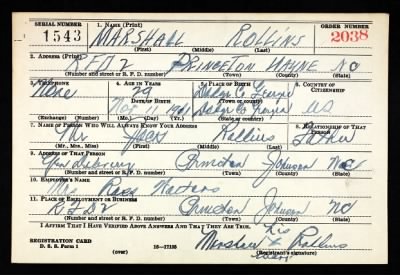 SERIAL NUMBER 1. NAME (Print) ORDER NUMBER
1543 MARSHALL ROLLINS 2038
(First) (Middle) (Last)
2. ADDRESS (Print)
R.F.D. 2 PRINCETON WAYNE NC
(Number and street or R. F. D. number) (Town) (County) (State)
3. TELEPHONE 4. AGE IN YEARS 5. PLACE OF BIRTH 6. COUNTRY OF CITIZENSHIP
None 29
DATE OF BIRTH
(Town or county)
Nov US
(Exchange) (Number) (Mo.) (Day) (Yr.) (State or country)
7. NAME OF PERSON WHO WILL ALWAYS KNOW YOUR ADDRESS 8. RELATIONSHIP OF THAT PERSON
Mr Rollins Father
(Mr., Mrs., Miss) (First) (Middle) (Last)
9. ADDRESS OF THAT PERSON
Gen delivery Princeton Johnson NC
(Number and street or R. F. D. number) (Town) (County) (State)
10. EMPLOYER'S NAME
Mrs
11. PLACE OF EMPLOYMENT OR BUSINESS
R F D 2 Princeton Johnson NC
(Number and street or R. F. D. number) (Town) (County) (State)
I AFFIRM THAT I HAVE VERIFIED ABOVE ANSWERS AND THAT THEY ARE TRUE.
his
REGISTRATION CARD Marshall X Rollins
D. S. S. Form 1 (over) 16—17105 (Registrant's signature)
mark